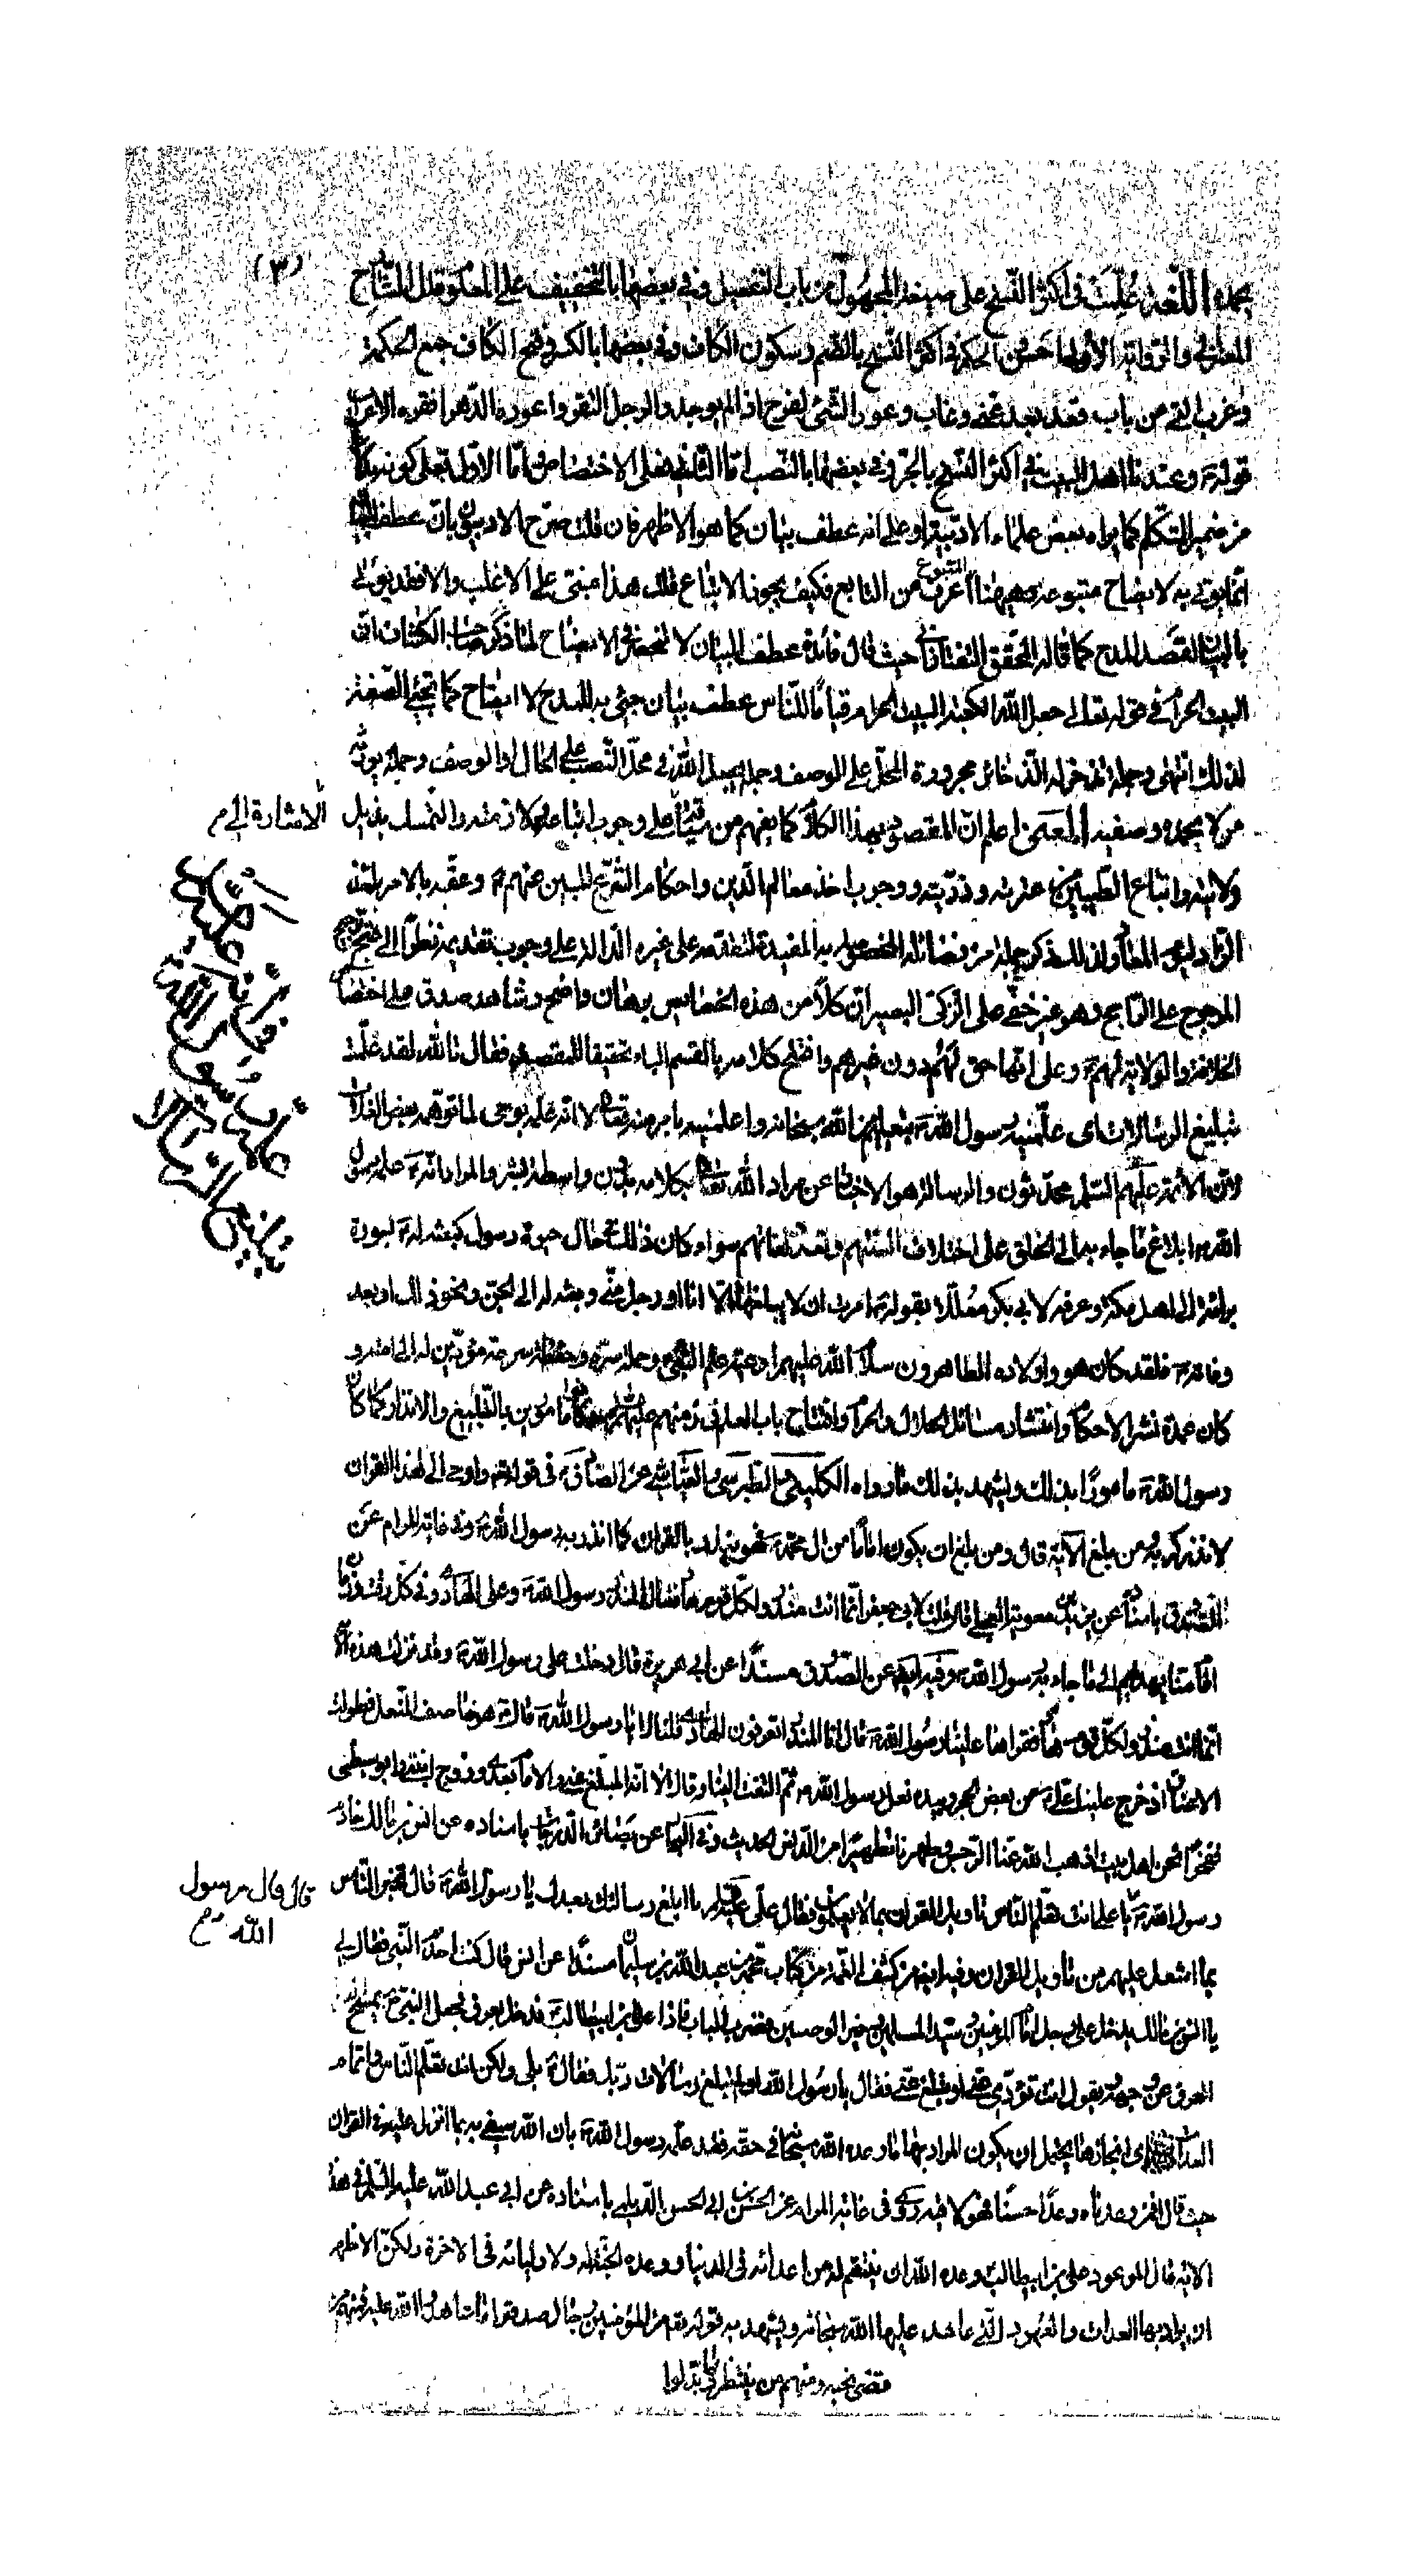 (٣)
بحمده اللغة علّمت فى اكثر النسخ على صيغة المجهول من باب التفعيل وفى بعضها بالتخفيف على المعلوم قال الشارح
المعتزلى والرواية الأولى احسن الحكم فى اكثر النسخ بالضم وسكون الكاف وفى بعضها بالكسر وفتح الكاف جمع الحكمة
وعزب الشئ من باب قعد بعد عنى وغاب وعوز الشئ لفرح اذا لم يوجد والرجل افتقر واعوزه الدهر افقره الاعراب
قوله وعندنا اهل البيت فى اكثر النسخ بالجر وفى بعضها بالنصب امّا الثانى فعلى الاختصاص وامّا الاوّل فعلى كونه بدلاً
من ضمير المتكلم كما يراه بعض علماء الادبية او على انه عطف بيان كما هو الاظهر فان قلت صرّح الادبيون بان عطف البيان
انّما يؤتى به لايضاح متبوعه وهيهنا المتبوع اعرف من التابع فكيف يجوز الاتباع قلت هذا مبنىّ على الاغلب والا فقد يؤتى
بالبيان لقصد المدح كما قاله المحقق التفتازانى حيث قال فائدة عطف البيان لا تنحصر فى الايضاح لما ذكر صاحب الكشاف انّ
البيت الحرام فى قوله تعالى جعل الله الكعبة البيت الحرام قياماً للناس عطف بيان جئ به للمدح لا ايضاح كما تجئ الصفة
لذلك انتهى وجملة تذخر له الذخائر مجرورة المحلّ على الوصف وجملة يجعل الله فى محلّ النصب على الحال او الوصف وجملة يورثه
من لا يحمده وصفية المعنى اعلم ان المقصود بهذا الكلام كما يفهم من سياقه الاشارة الى وجوب اتباعه وملازمته والتمسك بذيل
ولائته واتباع الطيبين من عترته وذريته ووجوب اخذ معالم الدين واحكام الشرع المبين عنهم وعقبه بالامر باخذ
المرجوح على الراجح وهو غير خفى على الزكى البصير ان كلا من هذه الخصايص برهان واضح وشاهد صدق على اختصاص
الخلافة والولاية لهم وعلى انها حق لهم دون غيرهم وافتتح كلامه بالقسم البار تحقيقا للمقصود فقال تالله لقد علّمت
تبليغ الرسالات اى علّمنيه رسول الله بتعليم من الله سبحانه واعلمنيه بامر منه تعالى لا انه علمه بوحى لما توهمه بعض الغلاة
لان الائمة عليهم السلم محدّثون والرسالة هو الاخبار عن مراد الله تعالى بكلامه بدون واسطة بشر والمراد انه علّمه رسول
الله ابلاغ ما جاء به الى الخلق على اختلاف السنتهم وتعدد لغاتهم سواء كان ذلك فى حال حيوة رسول كبعثه له لسورة
برائة الى اهل مكة وعزله لابى بكر معللا بقوله امرت ان لا يبلغها الا انا او رجل منّى وبعثه له الى الجن ونحو ذلك او بعد
وفاته فلقد كان هو واولاده الطاهرون سلام الله عليهم اوعية علم النبى وحملة سرّه وحفظة شرعه مؤدّين له الى امته و
كان عمدة نشر الاحكام وانتشار مسائل الحلال والحرام وافتتاح باب العلم فى زمنهم عليهم السلم وكانوا مامورين بالتبليغ والانذار كما كان
رسول الله مامورا بذلك ويشهد بذلك ما رواه الكلينى والطبرسى والعياشى عن الصادق فى قوله واوحى الى هذا القران
لانذركم به ومن بلغ الآية قال ومن بلغ ان يكون اماما من ال محمد فهو ينذر بالقران كما انذر به رسول الله وفى غاية المرام عن
الصدوق باسناده عن يزيد بن معوية العجلى قال قلت لابى جعفر انّما انت منذر ولكلّ قوم هاد فقال المنذر رسول الله وعلى الهادى وفى كلّ وقت وزمان
امام منا يهديهم الى ما جاء به رسول الله وفيه ايضا عن الصدوق مسندا عن ابى هريرة قال دخلت على رسول الله وقد نزلت هذه الآية
انّما انت منذر ولكلّ قوم هاد فقراها علينا رسول الله ثم قال انا المنذر اتعرفون الهادى قلنا لا يا رسول الله قال هو خاصف النعل فطولت
الاعناق اذ خرج علينا على من بعض الحجر وبيده نعل رسول الله ثم التفت الينا وقال الا انه المبلغ عنى والامام بعدى وزوج ابنتى وابو سبطى
فنحن اهل بيت اذهب الله عنا الرجس وطهرنا تطهيرا من الدنس الحديث وفى البحار عن بصائر الدرجات باسناده عن انس بن مالك خادم
رسول الله يا على انت تعلّم الناس تاويل القران بما لا يعلمون فقال على ما ابلغ رسالتك بعدك يا رسول الله قال تخبر الناس
بما اشكل عليهم من تاويل القران وفيه ايضا من كشف الغمة من كتاب محمد بن عبد الله بن سليمان مسندا عن انس قال كنت اخدم النبى فقال لى
يا انس بن مالك يدخل علىّ رجل امام المؤمنين وسيد المسلمين وخير الوصيين فضرب الباب فاذا على بن ابيطالب فدخل بعرق فجعل النبى يمسح
العرق عن وجهه ويقول انت تؤدّى عنى او تبلغ عنى فقال يا رسول الله او لم تبلغ رسالات ربّك فقال بلى ولكن انت تعلّم الناس واتمام
العدات اى انجازها يحتمل ان يكون المراد بها ما وعده الله سبحانه فى حقه فقد علم رسول الله بان الله سيفى به بما انزل عليه فى القران
حيث قال افمن وعدناه وعدا حسنا فهو لاقيه روى فى غاية المرام عن الحسن بن ابى الحسن الديلمى باسناده عن ابى عبد الله عليه السلم فى هذه
الاية قال الموعود على بن ابيطالب وعده الله ان ينتقم له من اعدائه فى الدنيا ووعده الجنة له ولاوليائه فى الاخرة ولكن الاظهر
ان يراد بها العدات والعهود التى عاهد عليها الله سبحانه ويشهد به قوله تعالى من المؤمنين رجال صدقوا ما عاهدوا الله عليه فمنهم من
قضى نحبه ومنهم من ينتظر وما بدّلوا
الاشارة الى م
قال قال رسول
الله م